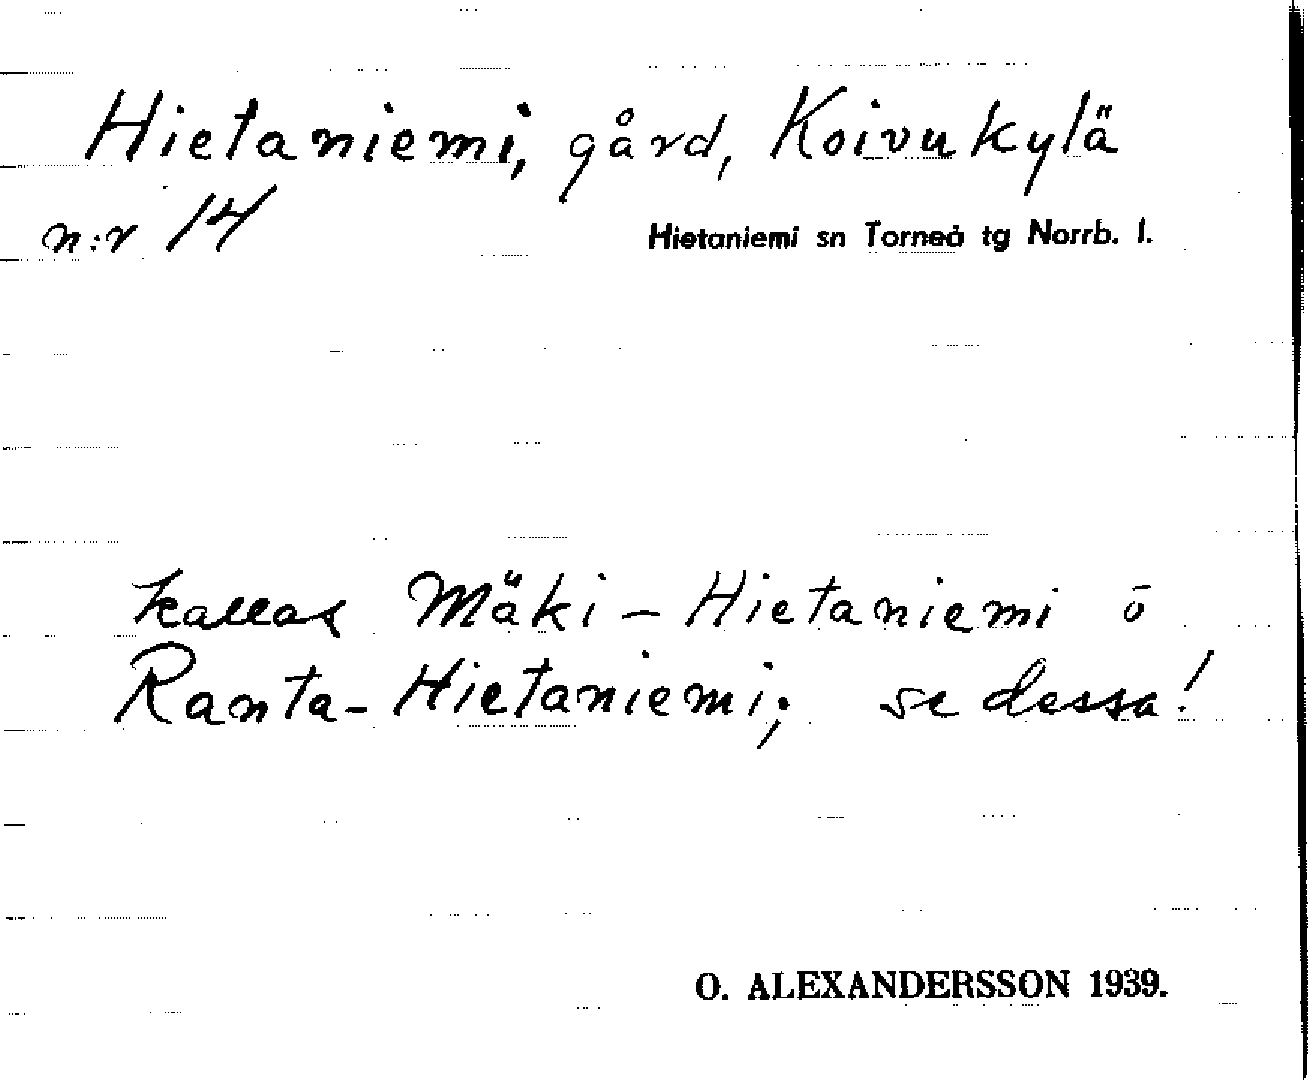 Hietaniemi, gård, Koivukylä
n:r 14
Hietaniemi sn Torneå tg Norrb. l.
kallas Mäki-Hietaniemi o
Ranta-Hietaniemi; se dessa!
O. ALEXANDERSSON 1939.